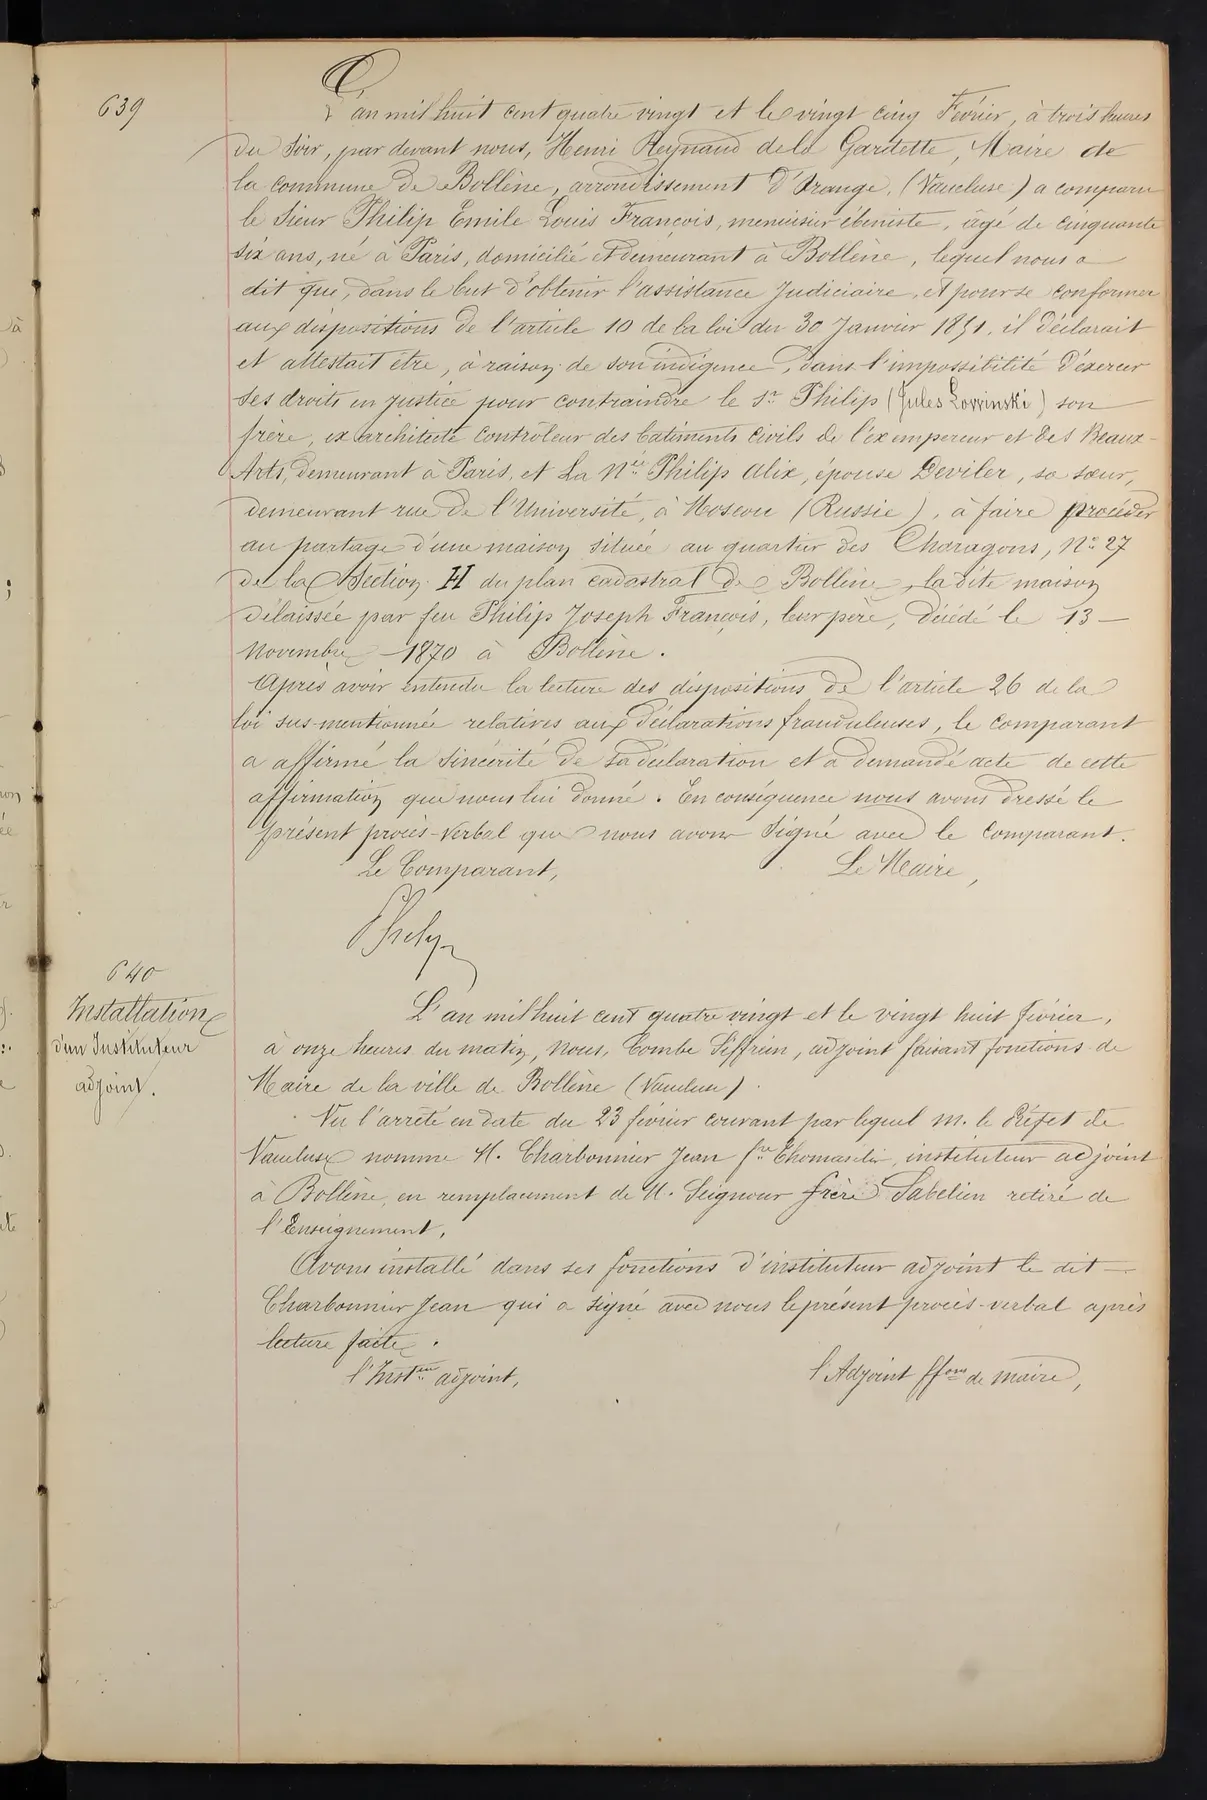 639
L'an mil huit cent quatre vingt et le vingt cinq Février, à trois heures
du soir, par devant nous, Henri Reynaud de la Gardette, Maire de
la commune de Bollène, arrondissement d'Orange, (Vaucluse) a comparu
le sieur Philip Emile Louis François, menuisier ébeniste, âgé de cinquante
six ans, né à Paris, domicilié et demeurant à Bollène, lequel nous a
dit que, dans le but d'obtenir l'assistance Judiciaire, et pour se conformer
aux dispositions de l'article 10 de la loi du 30 Janvier 1851, il déclarait
et attestait être, à raison de son indigence, dans l'impossibilité d'exercer
ses droits en justice pour contraindre le Sr Philip (Jules) son
frère, ex architecte contrôleur des batiments civils de l'ex empereur et des Beaux-
Arts, demeurant à Paris, et La Philip Alix, épouse Deviler, sa sœur,
demeurant rue de l'Université, à Moscou (Russie), à faire procéder
au partage d'une maison située au quartier des Charagons, No 27
de la Section H du plan cadastral de Bollène, la dite maison
délaissée par feu Philip Joseph François, leur père, décédé le 13 -
novembre - 1870 à Bollène.
Après avoir entendu la lecture des dispositions de l'article 26 de la
loi sus-mentionnée relatives aux déclarations frauduleuses, le comparant
a affirmé la sincérité de sa déclaration et a demandé acte de cette
affirmation que nous lui donné. En conséquence nous avons dressé le
présent procès-verbal que nous avons signé avec le comparant.
Le Comparant, Le Maire,
Philip
640
Installation
d'un Instituteur
adjoint.
L'an mil huit cent quatre vingt et le vingt huit février,
à onze heures du matin, Nous, Combe Siffrein, adjoint faisant fonctions de
Maire de la ville de Bollène (Vaucluse).
Vu l'arrêté en date du 23 février courant par lequel M. le Préfet de
Vaucluse nomme M. Charbonnier Jean fre instituteur adjoint
à Bollène, en remplacement de M. Seignour frère Sabelien retiré de
l'Enseignement,
Avons installé dans ses fonctions d'instituteur adjoint le dit -
Charbonnier Jean qui a signé avec nous le présent procès-verbal après
lecture faite.
l'Insteur adjoint, l'Adjoint ffons de maire,